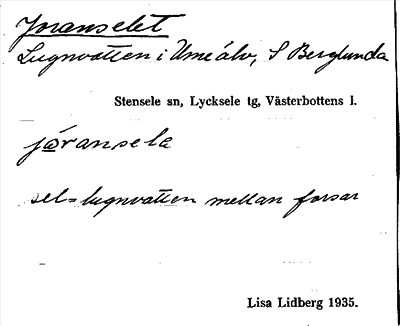 Joranselet
Lugnvatten i Ume älv, S Berglunda
Stensele sn, Lycksele tg, Västerbottens l.
jöransela
sel = lugnvatten mellan forsar
Lisa Lidberg 1935.